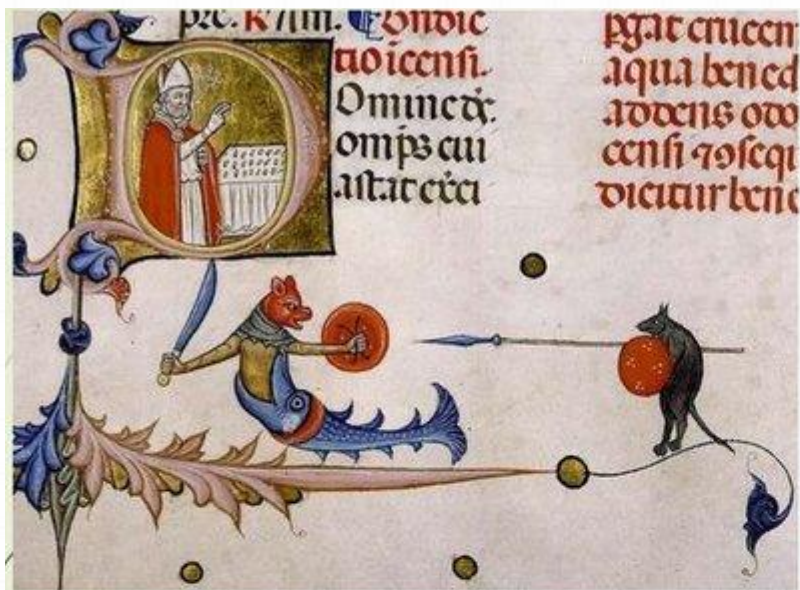 Bndic
tio icensi.
Domine
omps cui
astat exci
pgat crucem
aqua bened
addens odo
censi
dicitur bene